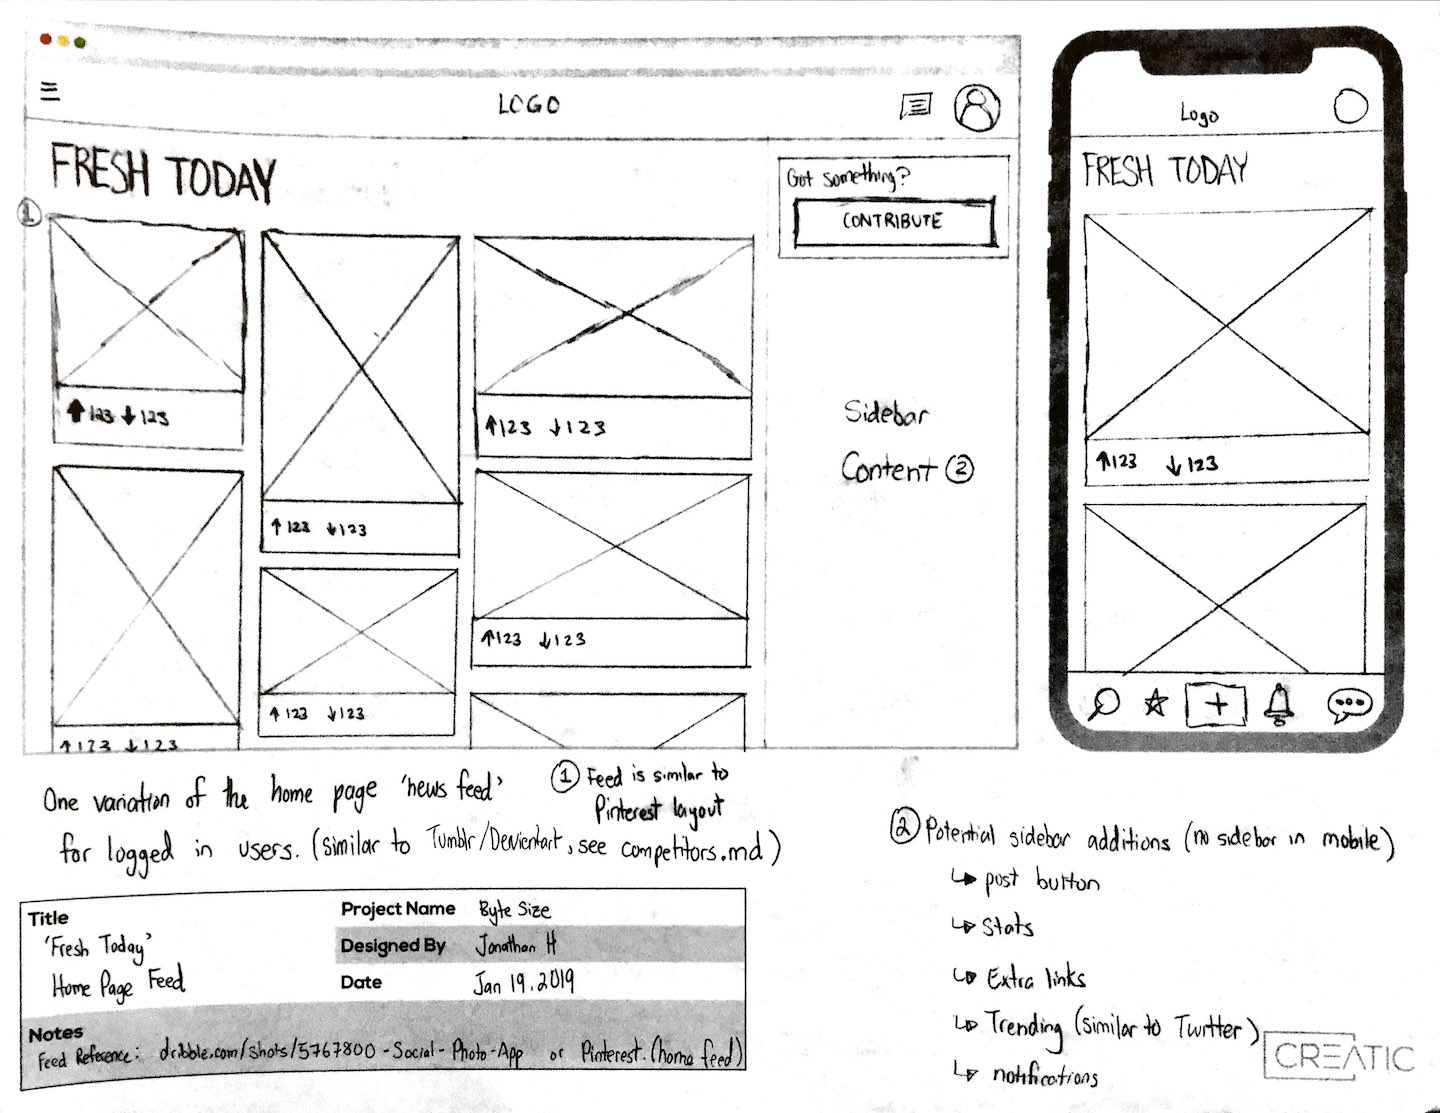 LOGO
FRESH TODAY
1
↑123 ↓123
↑123 ↓123
↑123 ↓123
↑123 ↓123
↑123 ↓123
↑123 ↓123
Got something?
CONTRIBUTE
Sidebar
Content 2
Logo
FRESH TODAY
↑123 ↓123
+
One variation of the home page 'news feed'
for logged in users. (similar to Tumblr/Devientart, see competitors.md)
1 Feed is similar to
Pinterest layout
2 Potential sidebar additions (no sidebar in mobile)
↳ post button
↳ Stats
↳ Extra links
↳ Trending (similar to Twitter)
↳ notifications
Title
'Fresh Today'
Home Page Feed
Project Name Byte Size
Designed By Jonathan H
Date Jan 19, 2019
Notes
Feed Reference: dribble.com/shots/5767800-Social-Photo-App or Pinterest. (home feed)
CREATIC